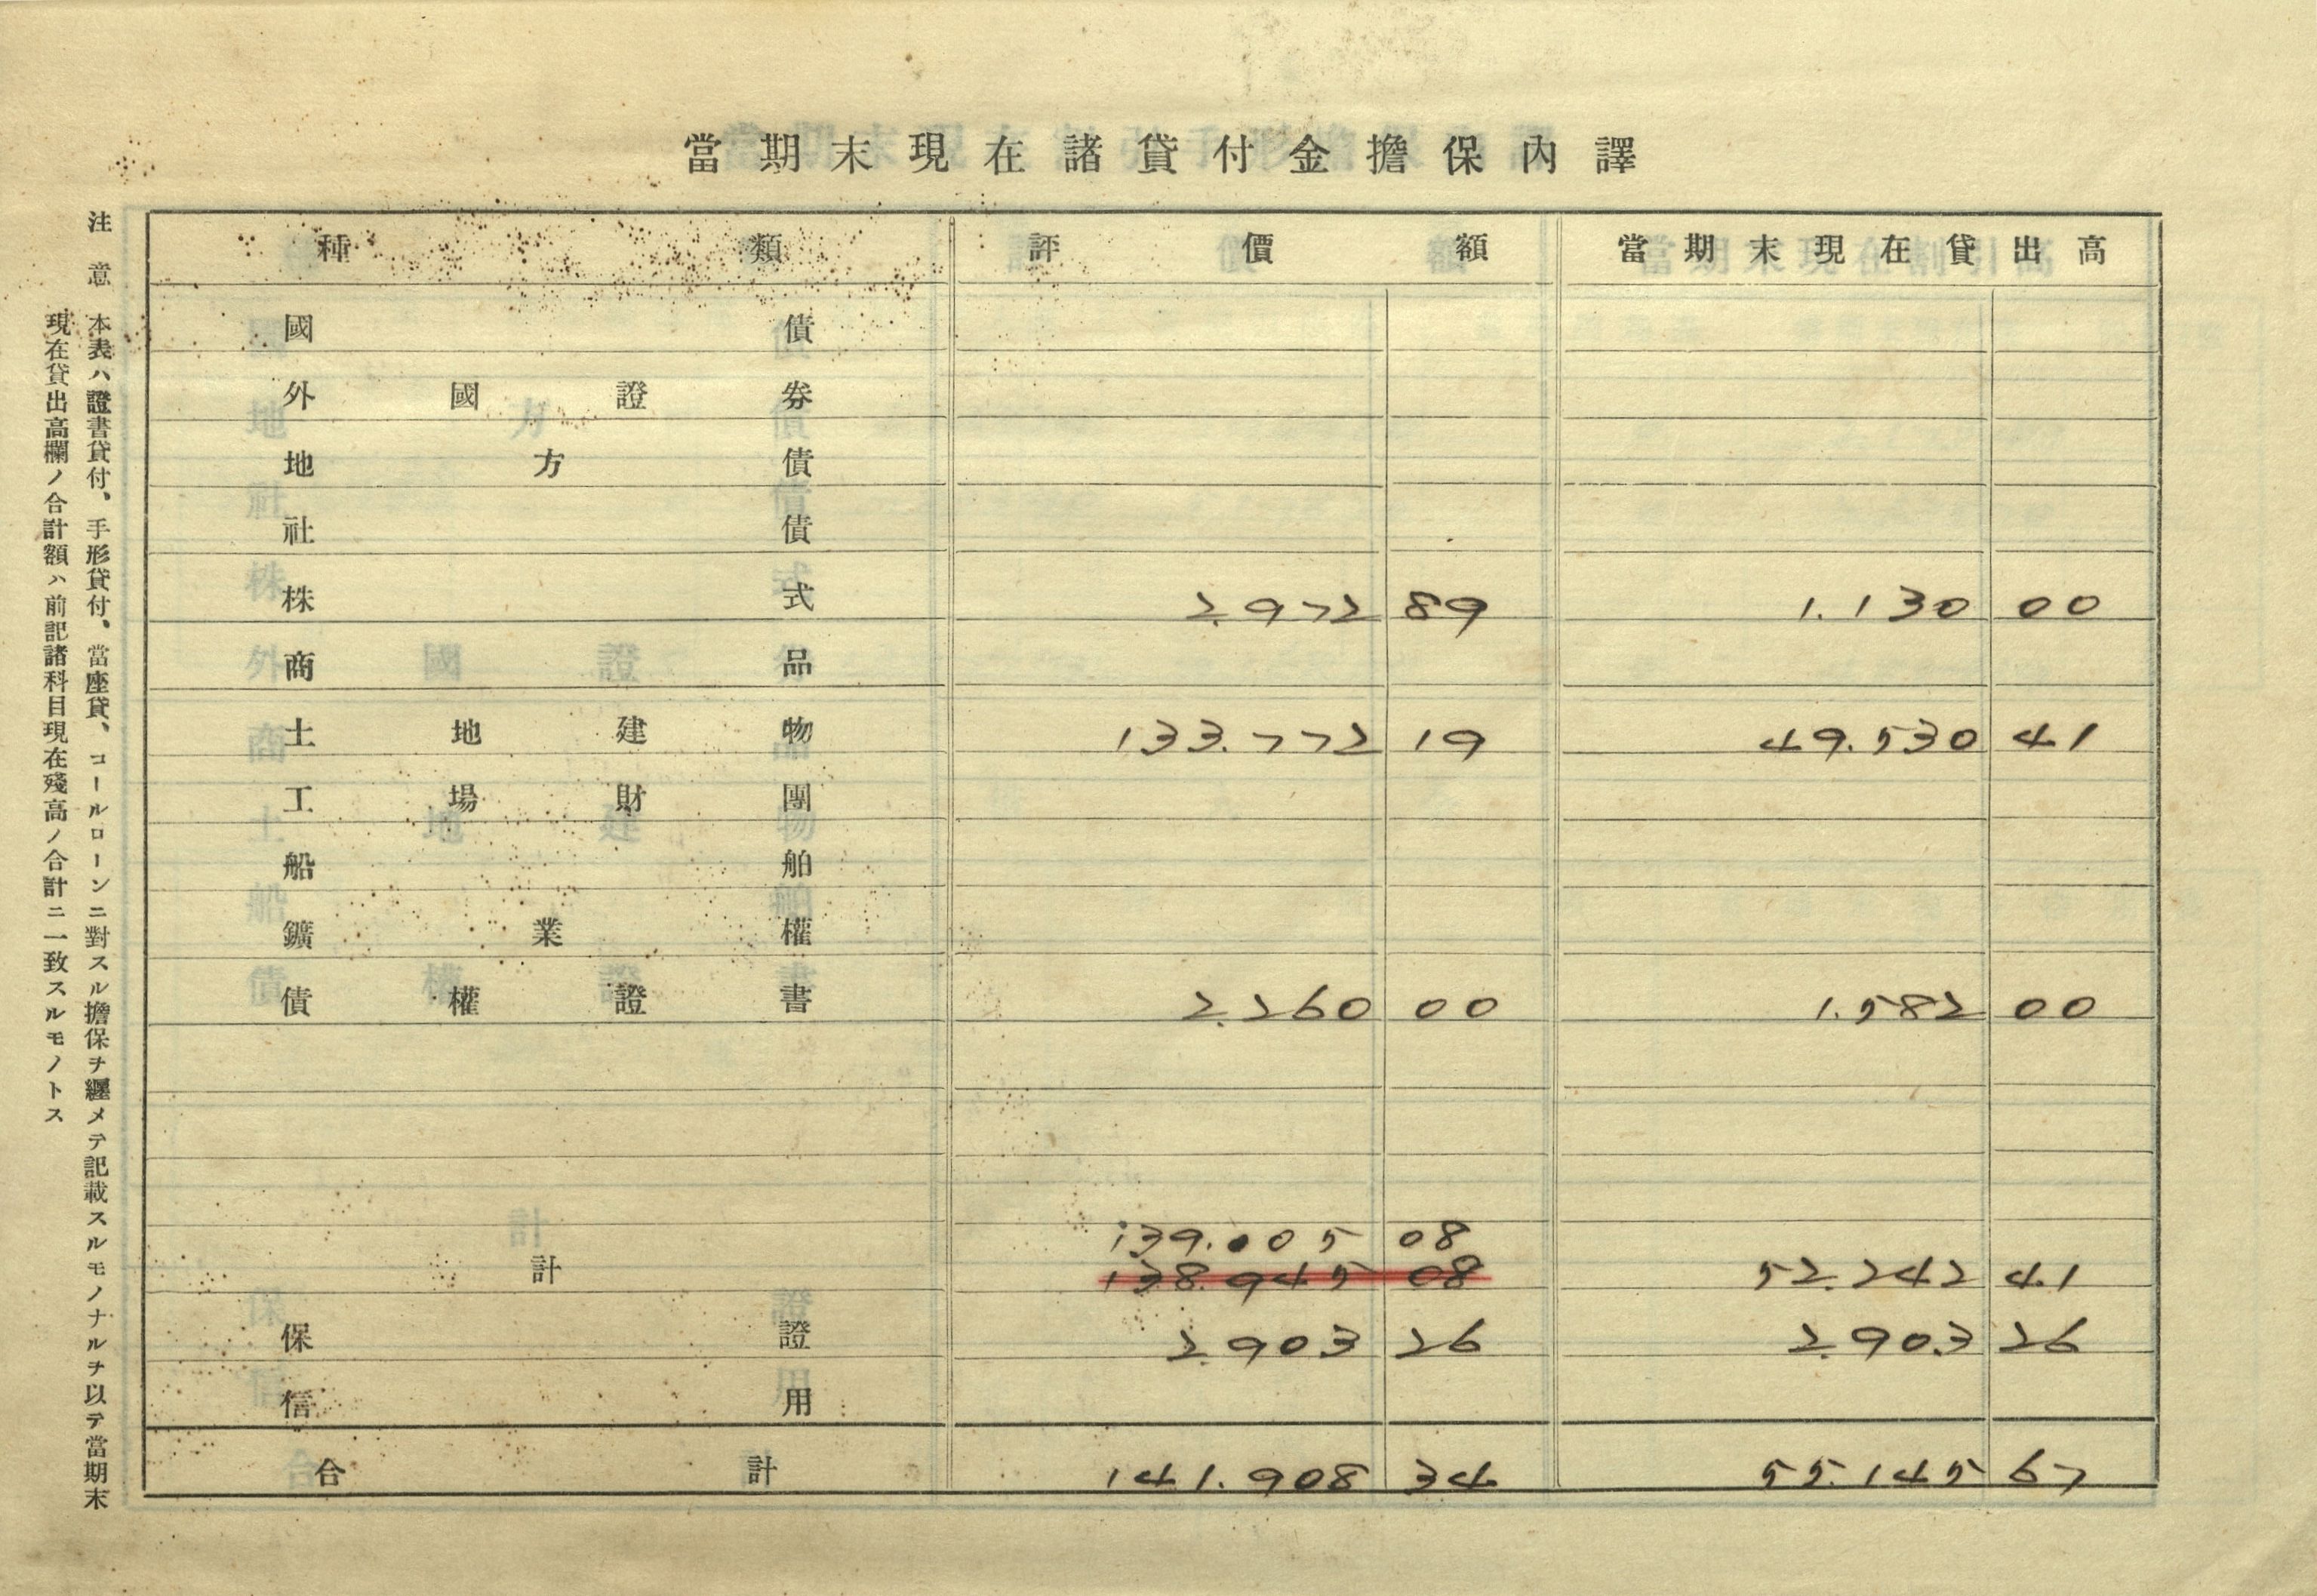 當期末現在諸貸付金擔保內譯
種類 評價額 當期末現在貸出高
國債
外國證券
地方債
社債
株式 2.972 89 1.130 00
商品
土地建物 133.772 19 49.530 41
工場財團
船舶
鑛業權
債權證書 2.260 00 1.582 00
139.005 08
計 138.945 08 52.242 41
保證 2.903 26 2.903 26
信用
合計 141.908 34 55.145 67
注意 本表ハ證書貸付、手形貸付、當座貸、コールローンニ對スル擔保ヲ纒メテ記載スルモノナルヲ以テ當期末
現在貸出高欄ノ合計額ハ前記諸科目現在殘高ノ合計ニ一致スルモノトス